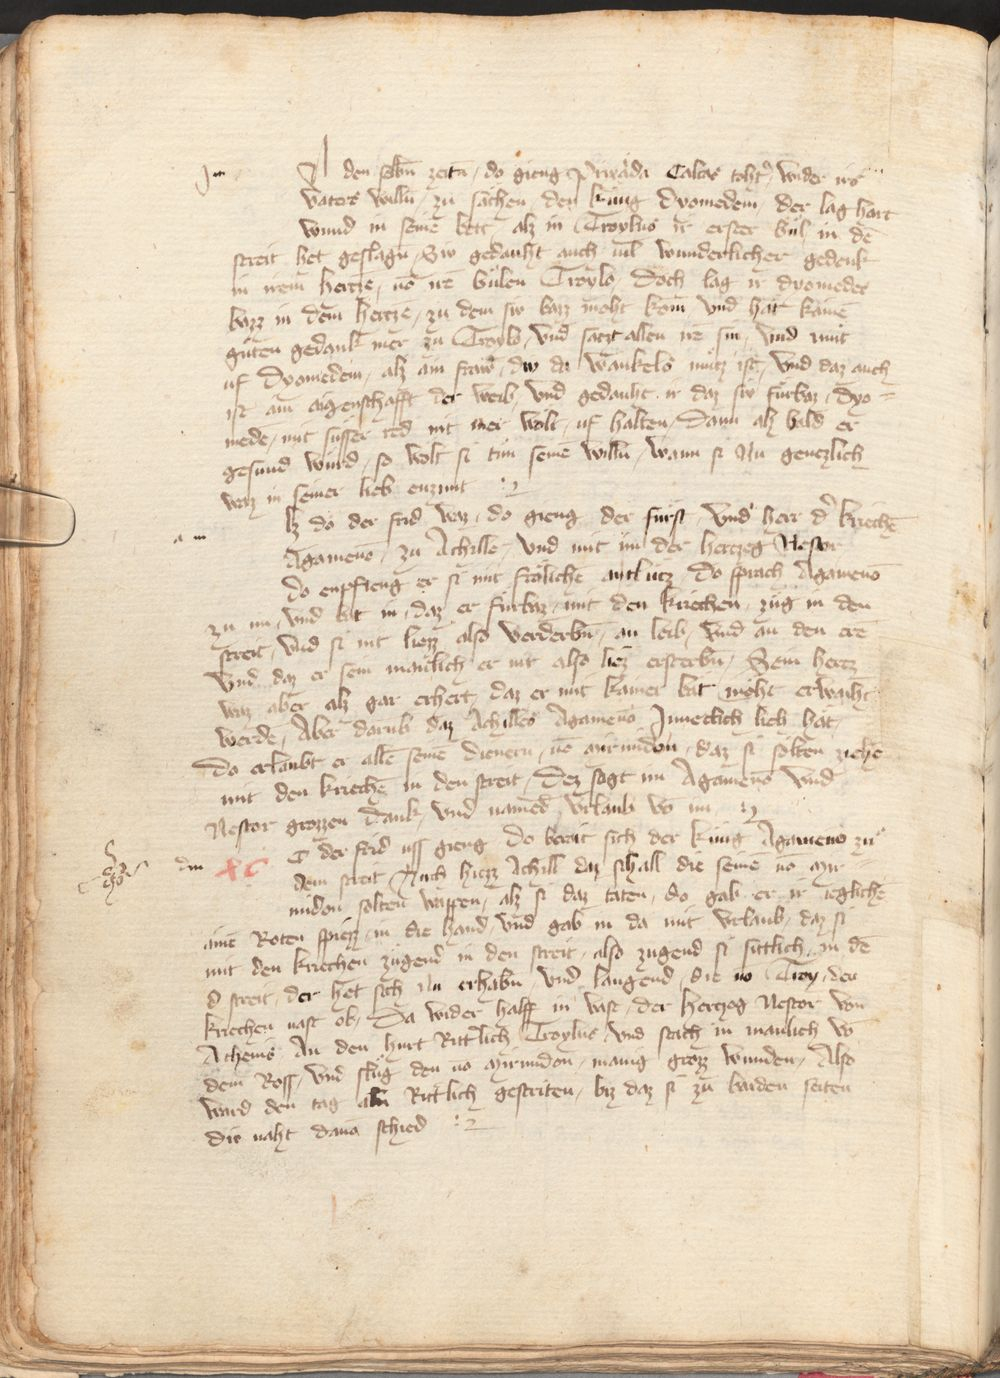 den selbn zeitn, do gieng Prixaida Calcas tohter, wider irs
vaters willn, zu sachen, den kunig dyomedem, der lag hart
wund in seine bett, alz in Troylus ir erster bul, in de
streit het geslagn, Siv gedauht auch vil wunderlicher gedenk
in irem hertze, uo ire bulen Troylo, Doch lag ir dyomedes
bazz in dem hertze, zu dem siv bazz moht kom, vnd hat kaine
guten gedank mer zu Troylo, vnd satzt allen ire sin, vnd mut
uf dyomedem, alz ain fraw, div da wankels mutz ist, vnd daz auch
ist ain aigenschafft der weib, vnd gedauht ir daz siv furbaz, dyo=
mede, mit susser red nit mer wolt, uf halten, Dann alz bald er
gesund wurd, so wolt si tun seine willn, wann si Nu gentzlich
waz in seiner lieb enzunt
lz do der frid waz, do gieng der furst, vnd herr dr kriechē
Agameno, zu Achille, vnd mit im der hertzog Nestor
do enpfieng er si mit frolichē antlutz, Do sprach Agameno
zu im, vnd bat in, daz er furbaz, mit den kriechen, zug in den
streit, vnd si nit liezz also verderbn, an leib, vnd an den ere
vnd daz er sein manlich er nit also liez ersterbn, Sein hertz
waz aber alz gar erhert, daz er mit kainer bat moht erwaiht
werde, Aber darub daz Achilles Agameno Jnneclich lieb hat,
Do erlaubt er alle seine dienern, uo mirmidon, daz si solten ziehe
mit den kriechē in den streit, Dez sagt im Agameno vnd
Nestor grozzen dank, vnd named vrlaub vo im
XC
der frid uss gieng do berait sich der kunig Agameno zu
dem streit, Auch hiezz Achill daz schall die seine uo mir=
midon solten waffen, alz si daz taten, do gab er ir ieglichē
aine Roten spiezz, in die hand, vnd gab in da mit vrlaub, daz si
mit den kriechen zugend in den streit, also zugend si sittlich, in de
d streit, der het sich Nu erhabn, vnd laugend, die uo Troy, den
kriechen vast ob, Da wider halff in vast, der hertzog Nestor von
Athenis An den hurt Rittlich Troylus, vnd stach in manlich vo
dem Ross, vnd slug den uo mirmidon, manig grozz wunden, Also
ward den tag Rittlich gestriten, biz daz si zu baiden seiten
die naht dauo schied